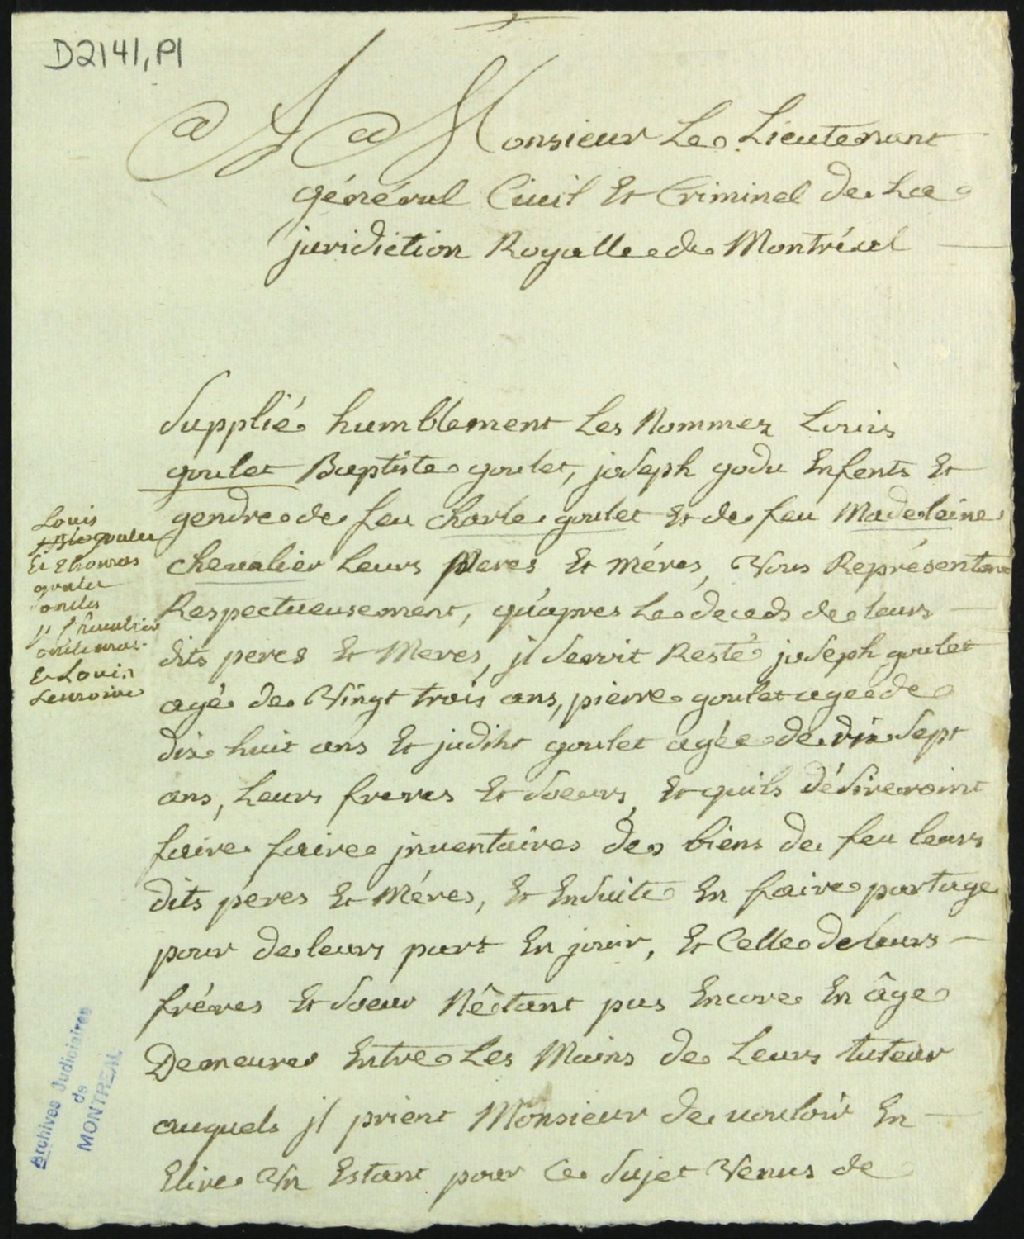 D2141, P1
A Monsieur Le Lieutenant
général Ciuil Et Criminel de La
juridiction Royalle de Montréal
Supplié humblement Les Nommez Louis
goulet Baptiste goulet, joseph godu Enfents Et
gendre de feu charle goulet Et de feu Madeleine
chevalier Leurs Peres Et Méres, Vous Représentent
Respectueusement, qu'apres Le deceds de leurs
dits peres Et Meres, jl seroit Resté joseph goulet
agé de Vingt trois ans, pierre goulet agée de
dix huit ans Et judiht goulet agée de dix Sept
ans, Leurs freres Et Soeurs, Et quils désireroint
faire faire jnuentaires des biens de feu leurs
dits péres Et Méres, Et Ensuite En faire partage
pour de leurs part En jouir, Et Celle de leurs
fréres Et Soeur Nêttant pas Encore En âge
Demeurer Entre Les Mains de Leurs tuteur
auquels jl prient Monsieur de uouloir En
Elire Vn Estant pour Ce Sujet Venus de
Louis
goulet
Et thomas
goulet
oncles
jt chevalier
Et Louis
Archives Judiciaires
de
MONTREAL